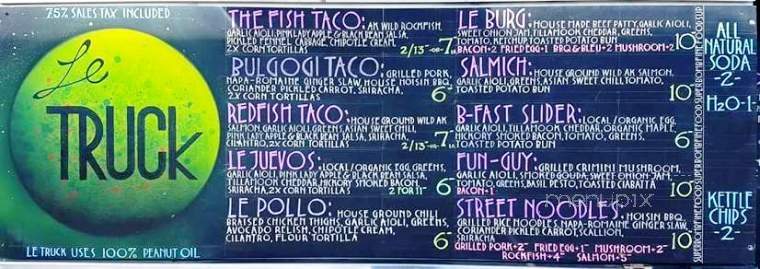 7.5% SALES TAX INCLUDED
Le
TRUCK
LE TRUCK USES 100% PEANUT OIL
THE FISH TACO: AK WILD ROCKFISH,
GARLIC AIOLI, PINK LADY APPLE & BLACK BEAN SALSA,
PICKLED FENNEL, CABBAGE, CHIPOTLE CREAM,
2X CORN TORTILLAS 2/13- 7-
BULGOGI TACO: GRILLED PORK,
NAPA-ROMAINE GINGER SLAW, HOUSE HOISIN BBQ,
CORIANDER PICKLED CARROT, SRIRACHA,
2X CORN TORTILLAS 6-
REDFISH TACO: HOUSE GROUND WILD AK
SALMON, GARLIC AIOLI, GREENS, ASIAN SWEET CHILI,
PINK LADY APPLE & BLACK BEAN SALSA, SRIRACHA,
CILANTRO, 2X CORN TORTILLAS 2/13- 7-
LE JUEVOS: LOCAL/ORGANIC EGG, GREENS,
GARLIC AIOLI, PINK LADY APPLE & BLACK BEAN SALSA,
TILLAMOOK CHEDDAR, HICKORY SMOKED BACON,
2X CORN TORTILLAS 2 FOR 11- 6-
LE POLLO: HOUSE GROUND CHILI
BRAISED CHICKEN THIGHS, GARLIC AIOLI, GREENS,
AVOCADO RELISH, CHIPOTLE CREAM,
CILANTRO, FLOUR TORTILLA 6-
LE BURG: HOUSE MADE BEEF PATTY, GARLIC AIOLI,
SWEET ONION JAM, TILLAMOOK CHEDDAR, GREENS,
TOMATO, KETCHUP, TOASTED POTATO BUN
BACON+2 FRIED EGG+1 BBQ & BLEU+2 MUSHROOM+2 10
SALMICH: HOUSE GROUND WILD AK SALMON,
GARLIC AIOLI, GREENS, ASIAN SWEET CHILI, TOMATO,
TOASTED POTATO BUN 10
B-FAST SLIDER: LOCAL/ORGANIC EGG,
GARLIC AIOLI, TILLAMOOK CHEDDAR, ORGANIC MAPLE,
HICKORY SMOKED BACON, TOMATO, GREENS,
TOASTED POTATO BUN 6-
FUN-GUY: GRILLED CRIMINI MUSHROOM,
GARLIC AIOLI, SMOKED GOUDA, SWEET ONION JAM,
TOMATO, GREENS, BASIL PESTO, TOASTED CIABATTA
BACON+1- 10
STREET NOODLES: HOISIN BBQ,
GRILLED RICE NOODLES, NAPA-ROMAINE GINGER SLAW,
CORIANDER PICKLED CARROT, SCALLION,
SRIRACHA 10
GRILLED PORK+2- FRIED EGG+1- MUSHROOM+2-
ROCKFISH+4- SALMON+5-
ALL
NATURAL
SODA
-2-
H2O-1-
KETTLE
CHIPS
-2-
menupix